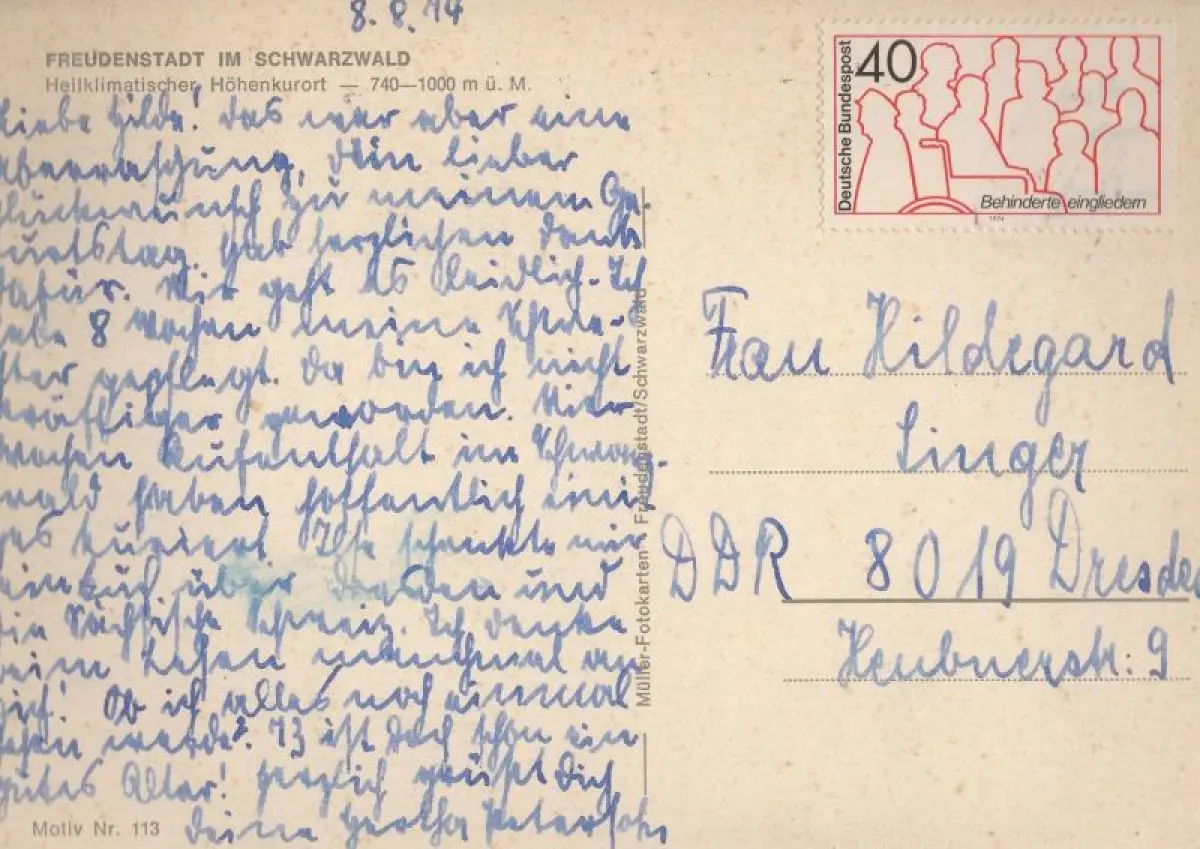 8. 8. 74
FREUDENSTADT IM SCHWARZWALD
Heilklimatischer Höhenkurort — 740—1000 m ü. M.
Liebe Hilde! Das war aber eine
Überraschung, Dein lieber
Glückwunsch zu meinem Ge-
burtstag. Hab herzlichen Dank
dafür. Mir geht es leidlich. Ich
habe 8 Wochen meine Schwe-
ster gepflegt. Da bin ich nicht
kräftiger geworden. Vier
Wochen Aufenthalt im Schwarz-
wald haben hoffentlich eini-
ges kuriert. Ilse schenkte mir
ein Buch über Dresden und
die Sächsische Schweiz. Ich denke
beim Lesen manchmal an
Dich! Ob ich alles noch einmal
sehen werde? 73 ist doch schon ein
gutes Alter! Herzlich grüßt Dich
Deine Hertha Petersohn
Motiv Nr. 113
Müller-Fotokarten - Freudenstadt/Schwarzwald
Deutsche Bundespost
40
Behinderte eingliedern
1974
Frau Hildegard
Singer
DDR 8019 Dresden
Heubnerstr. 9